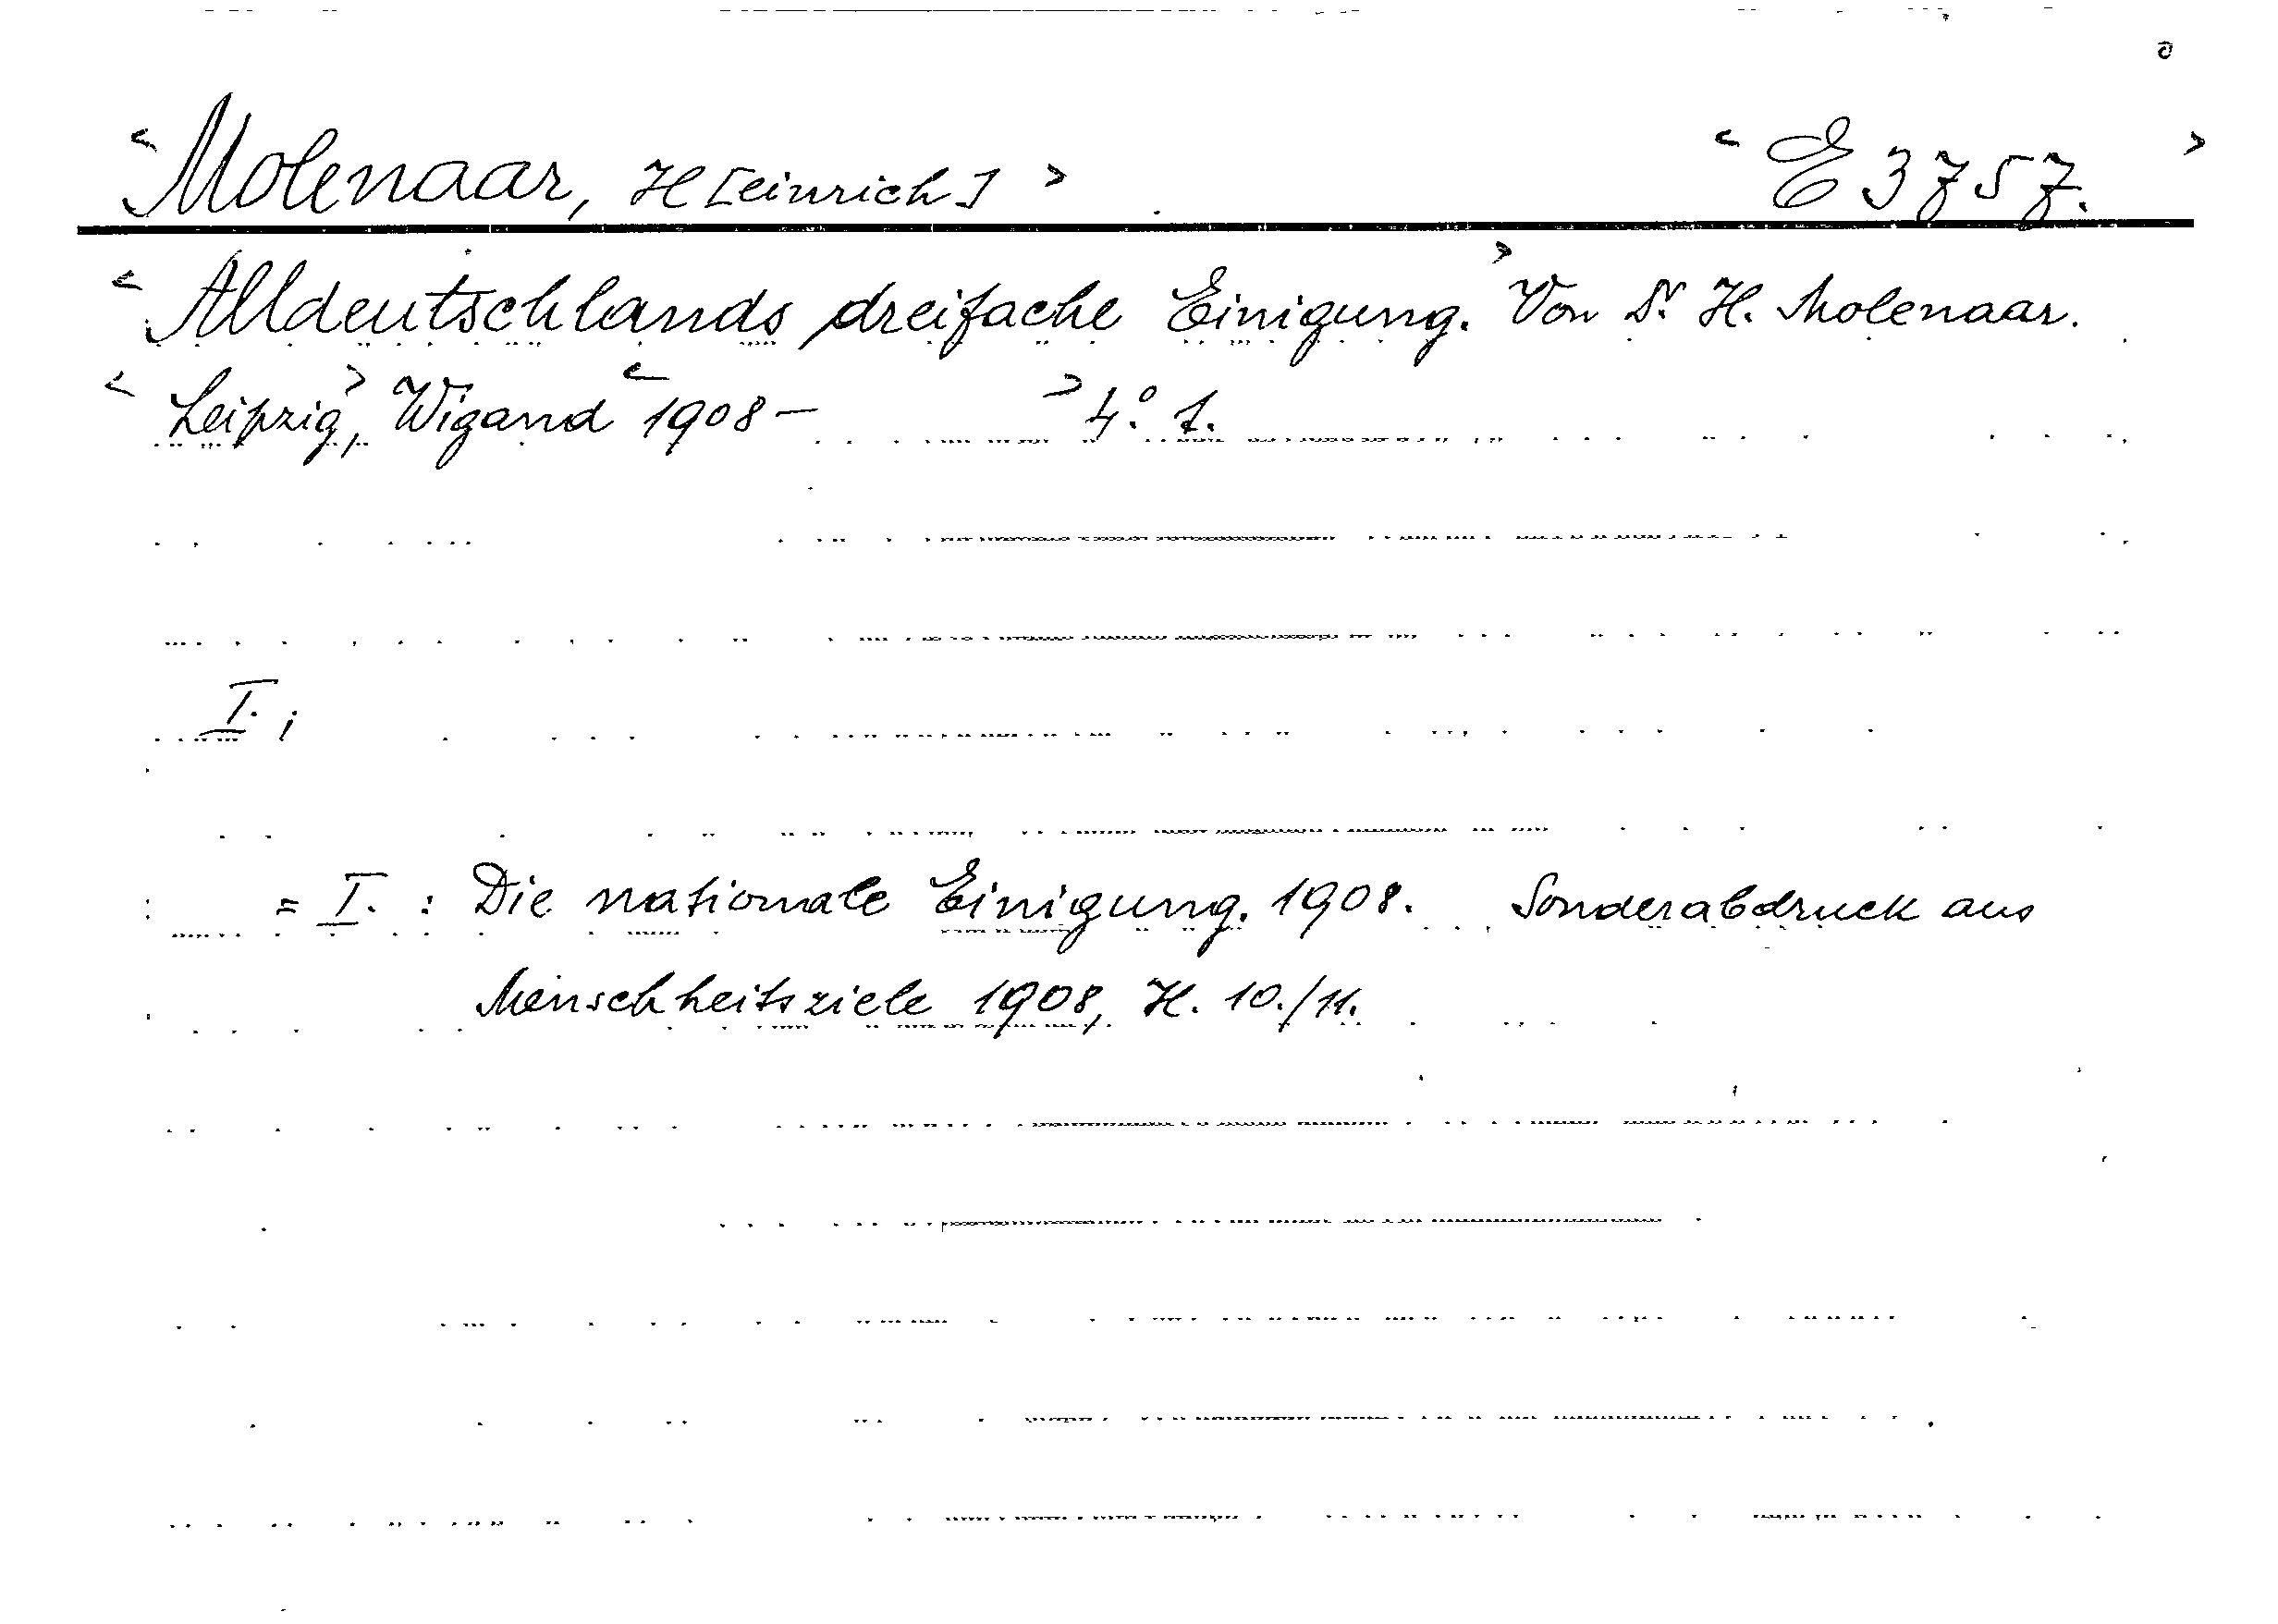 < Molenaar, H[einrich] > < E 3757. >
< Alldeutschlands dreifache Einigung. > Von Dr. H. Molenaar.
< Leipzig, > Wigand < 1908 – > 4°. 1.
I. ;
= I. : Die nationale Einigung. 1908. Sonderabdruck aus
Menschheitsziele 1908, H. 10./11.